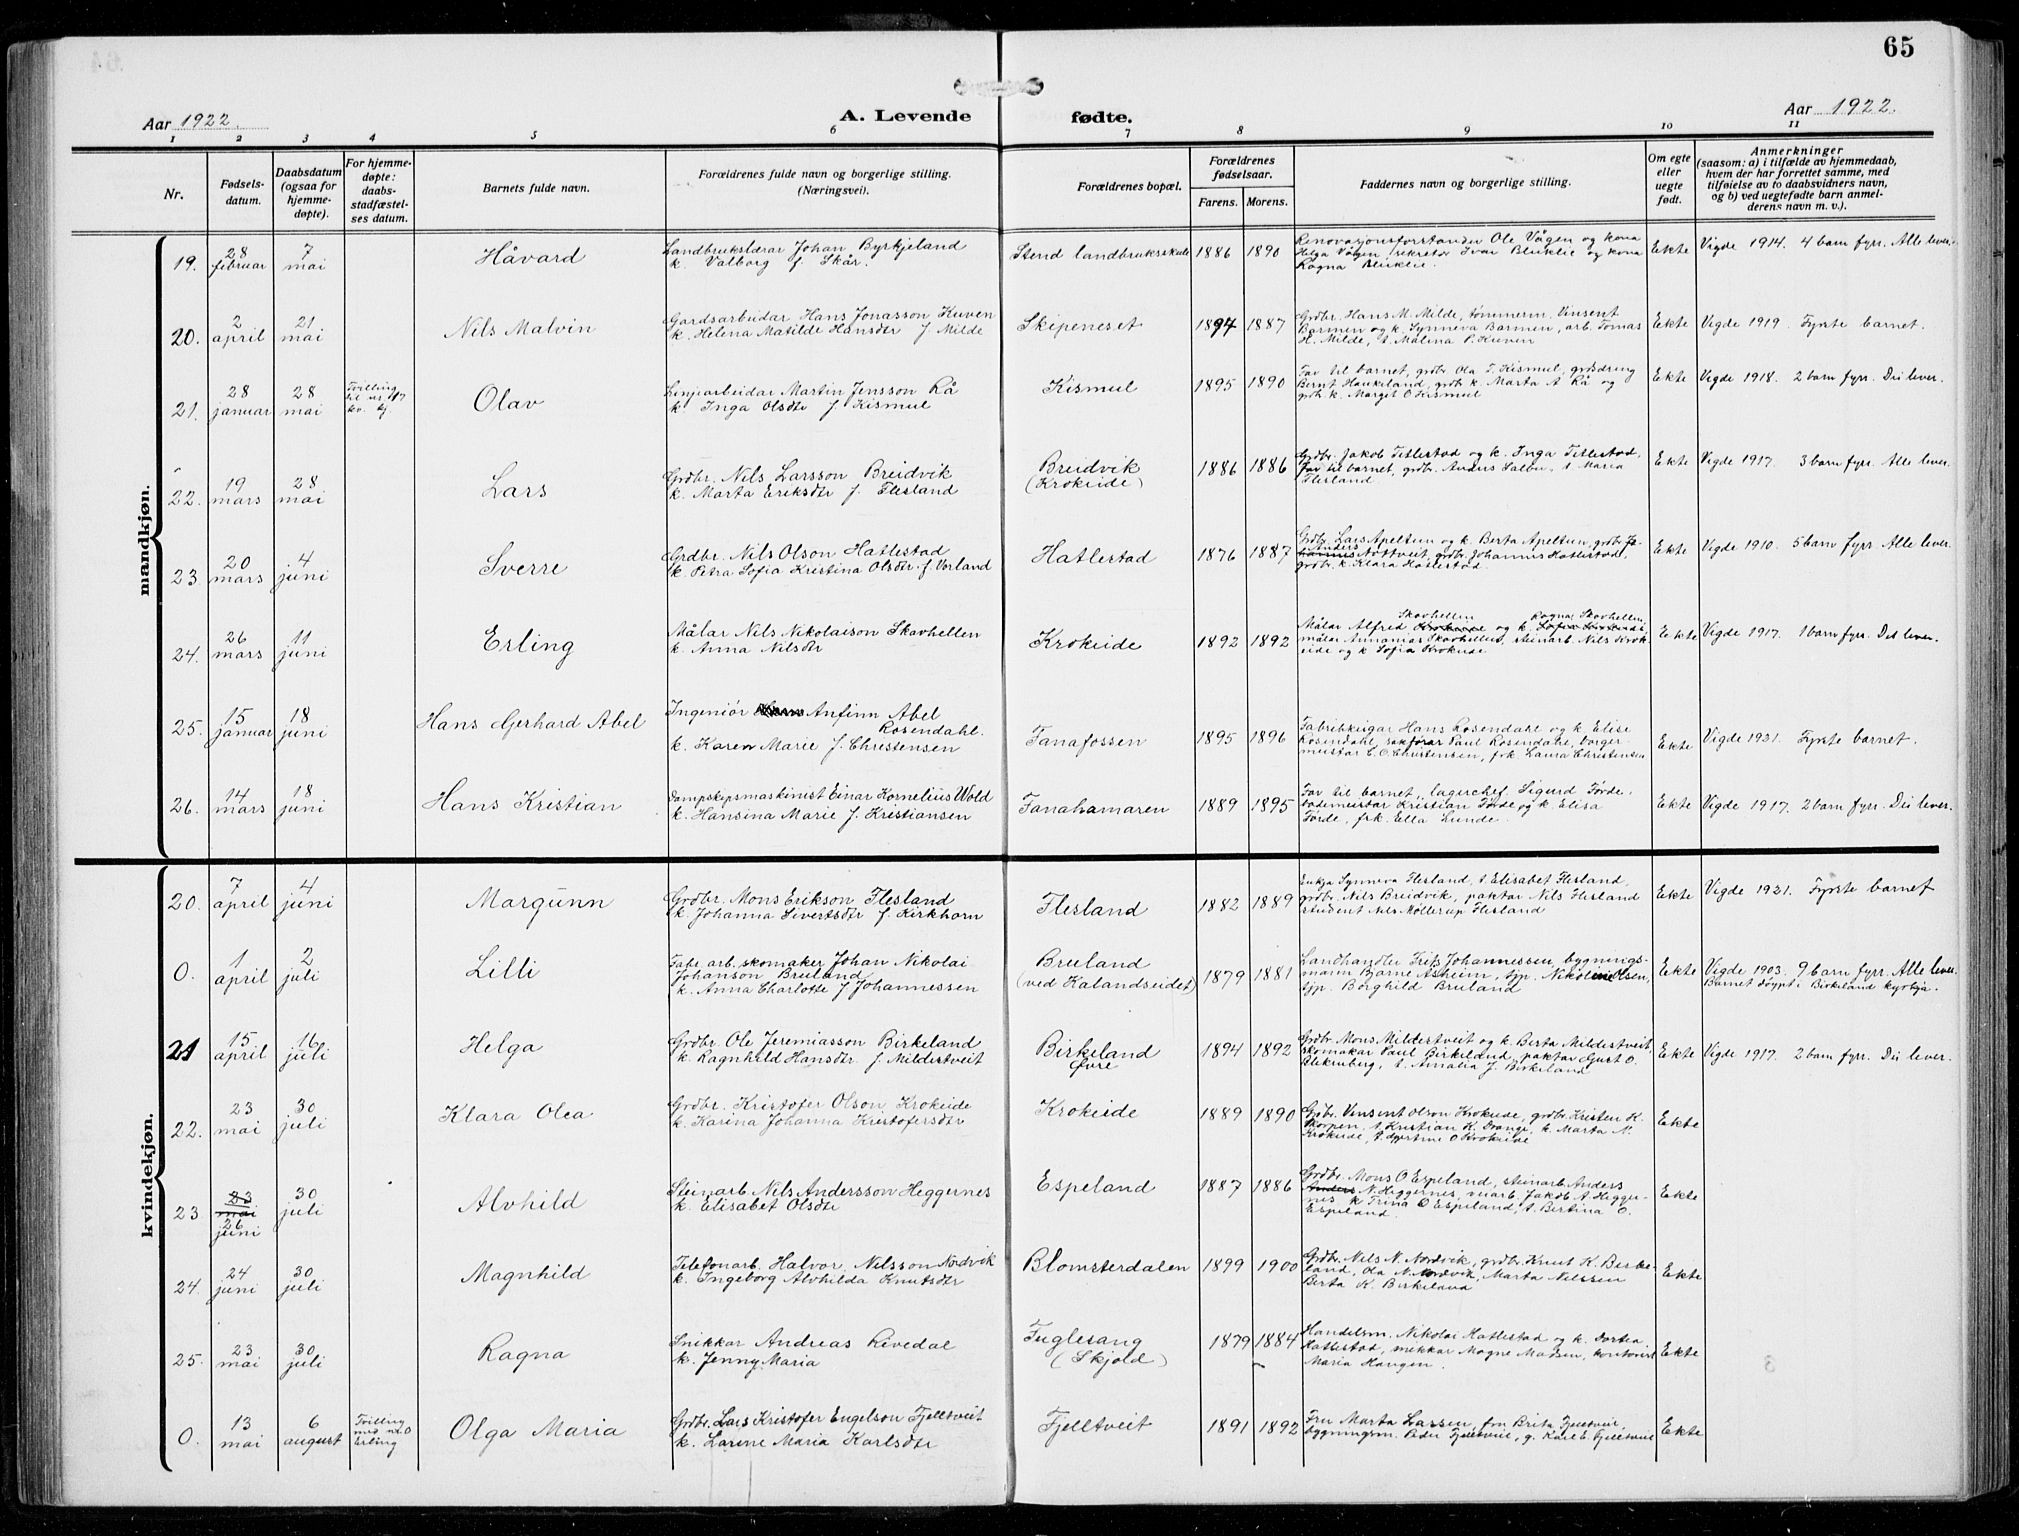 65
Aar 1922.
A. Levende
fødte.
Aar 1922.
1 2 3 4 5 6 7 8 9 10 11
Nr.
Fødsels-
datum.
Daabsdatum
(ogsaa for
hjemme-
døpte).
For hjemme-
døpte:
daabs-
stadfæstel-
ses datum.
Barnets fulde navn.
Forældrenes fulde navn og borgerlige stilling.
(Næringsvei).
Forældrenes bopæl.
Forældrenes
fødselsaar.
Farens. Morens.
Faddernes navn og borgerlige stilling.
Om egte
eller
uegte
født.
Anmerkninger
(saasom: a) i tilfælde av hjemmedaab,
hvem der har forrettet samme, med
tilføielse av to daabsvidners navn,
og b) ved uegtefødte barn anmel-
derens navn m. v.).
mandkjøn.
19.
28
februar
7
mai
Håvard
Landbrukslærar Johan Byrkjeland
k. Valborg f. Skår.
Stend landbruksskule
1886 1890
Renovasjonsforstander Ole Vågen og kona
Helga Vågen, sekretær Ivar Bleiklie og kona
Ragna Bleiklie.
Ekte
Vigde 1914. 4 barn fyrr. Alle lever.
20.
2
april
21
mai
Nils Malvin
Gardsarbeidar Hans Jonasson Kuven
k. Helena Matilde Hansdtr f. Milde
Skipeneset
1894 1887
Grdbr. Hans M. Milde, tømmerm. Vinsent
Barmen og k. Synneva Barmen, arb. Tomas
H. Milde, t. Malina P. Kuven
Ekte
Vigde 1919. Fyrste barnet.
21.
28
januar
28
mai
Tvilling
til nr. 17
kv. kj
Olav
Linjearbeidar Martin Jensson Rå
k. Inga Olsdtr f. Kismul
Kismul
1895 1890
Far til barnet, grdbr Ola T. Kismul, grdsdreng
Bernt Haukeland, grdbr k. Marta A Rå og
grdbr. k. Marget O Kismul
Ekte
Vigde 1918. 2 barn fyrr. Dei lever.
22.
19
mars
28
mai
Lars
Grdbr. Nils Larsson Breidvik
k. Marta Eriksdtr f. Flesland
Breidvik
(Krokeide)
1886 1886
Grdbr. Jakob Titlestad og k. Inga Titlestad,
Far til barnet, grdbr. Anders Salbu, t Maria
Flesland
Ekte
Vigde 1917. 3 barn fyrr. Alle lever.
23
20
mars
4
juni
Sverre
Grdbr. Nils Olson Hatlestad
k. Petra Sofia Kristina Olsdtr. f Vorland
Hatlestad
1876 1887
Grdbr. Lars Apeltun og k. Berta Apeltun, grdbr Jo-
Anders
hannis Tottveit, grdbr. Johannis Hatlestad,
grdbr. k. Klara Hatlestad.
Ekte
Vigde 1910. 5 barn fyrr. Alle lever.
24.
26
mars
11
juni
Erling
Målar Nils Nikolaison Skarhellen
k. Anna Nilsdtr
Krokeide
1892 1892
Skarhellen Ragna Skarhellen,
Målar Alfred Krokeide og k.
målar Annanias Skarhellen, steinarb. Nils Krok-
eide og k Sofia Krokeide
Ekte
Vigde 1917. 1 barn fyrr. Det lever.
25.
15
januar
18
juni
Hans Gerhard Abel
Ingeniør Anfinn Abel
Rosendahl.
k. Karen Marie f. Christensen
Fanafossen
1895 1896
Fabrikkeigar Hans Rosendahl og k Elise
Rosendahl, sakførar Paul Rosendahl, borger
meistar C. O. Christensen, frk. Laura Christensen
Ekte
Vigde 1921. Fyrste barnet.
26.
14
mars
18
juni
Hans Kristian
Dampskipsmaskinist Einar Kornelius Wold
k. Hansina Marie f. Kristiansen
Fanahamaren
1889 1895
Far til barnet, lagerchef. Sigurd Førde,
bademeistar Kristian Førde og k. Elisa
Førde, frk. Ella Lunde.
Ekte
Vigde 1917. 2 barn fyrr. Dei lever.
kvindekjøn.
20.
7
april
4
juni
Margunn
Grdbr. Mons Erikson Flesland
k. Johanna Sivertsdtr f. Kirkhorn
Flesland
1882 1889
Enkja Synneva Flesland, t. Elisabet Flesland,
grdbr. Nils Breidvik, paktar Nils Flesland
student Nils Møllerup Flesland
Ekte
Vigde 1921. Fyrste barnet
0.
1
april
2
juli
Lilli
Fabr. arb. skomaker Johan Nikolai
Johanson Bruland
k. Anna Charlotte f Johannessen
Bruland
(ved Kalandseidet)
1879 1881
Landhandler Fritz Johannessen, bygnings-
mann Bjarne Askeim, tjp. Nikoline Olsen,
tjp. Borghild Bruland
Ekte
Vigde 1903. 9 barn fyrr. Alle lever.
Barnet døypt i Birkeland kyrkja.
21
15
april
16
juli
Helga
Grdbr. Ole Jeremiasson Birkeland
k. Ragnhild Hansdtr. f. Mildestveit
Birkeland
Øvre
1894 1892
Grdbr. Mons Mildestveit og k. Berta Mildestveit,
skomakar Paul Birkeland, paktar Gust O.
Blekenberg, t. Amalia J. Birkeland
Ekte
Vigde 1917. 2 barn fyrr. Dei lever.
22.
23
mai
30
juli
Klara Olea
Grdbr. Kristofer Olson Krokeide
k. Karina Johanna Kristofersdtr
Krokeide
1889 1890
Grdbr. Vinsent Olson Krokeide, grdbr. Kristen K.
Skorpen, t. Kristian K. Drange, k. Marta N.
Krokeide, t. Gjertine O Krokeide
Ekte
23
23
mai
26
juni
30
juli
Alvhild
Steinarb Nils Andersson Heggernes
k. Elisabet Olsdtr
Espeland
1887 1886
Grdbr. Mons O Espeland, steinarb. Anders
Anders N. Heggernes, veiarb. Jakob A. Hegger-
nes k Trina O Espeland, t. Bertina O.
Espeland.
Ekte
24.
24
juni
30
juli
Magnhild
Telefonarb. Halvor Nilsson Nordvik
k. Ingeborg Alvhilda Knutsdtr
Blomsterdalen
1899 1900
Grdbr. Nils N. Nordvik, grdbr. Knut K. Birke-
land, Ola N. Nordvik, Marta Nilssen
Berta K. Birkeland
Ekte
25.
23
mai
30
juli
Ragna
Snikkar Andreas Rivedal
k. Jenny Maria
Fuglesang
(Skjold)
1879 1884
Handelsm. Nikolai Hatlestad og k. Dortea
Hatlestad, snikkar Magne Madsen, kontorist
Maria Haugen.
Ekte
0.
13
mai
6
august
Tvilling
med nr. 0
Erling
Olga Maria
Grdbr. Lars Kristofer Engelson Fjelltveit
k. Larine Maria Karlsdtr
Fjelltveit
1891 1892
Fru Marta Larsen, fru Brita Fjelltveit,
bygningsm. Peder Fjelltveit, g. Karl E. Fjelltveit
Ekte